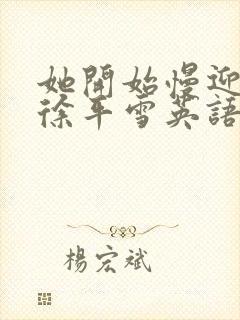 她開始慢迎
徐平雪英語
楊宏斌